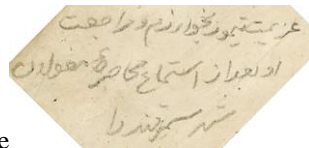 عزیمت تیمور بخوارزم و مراجعت
او بعد از استماع محاصرهٔ مغولان
شهر سمرقند را
e